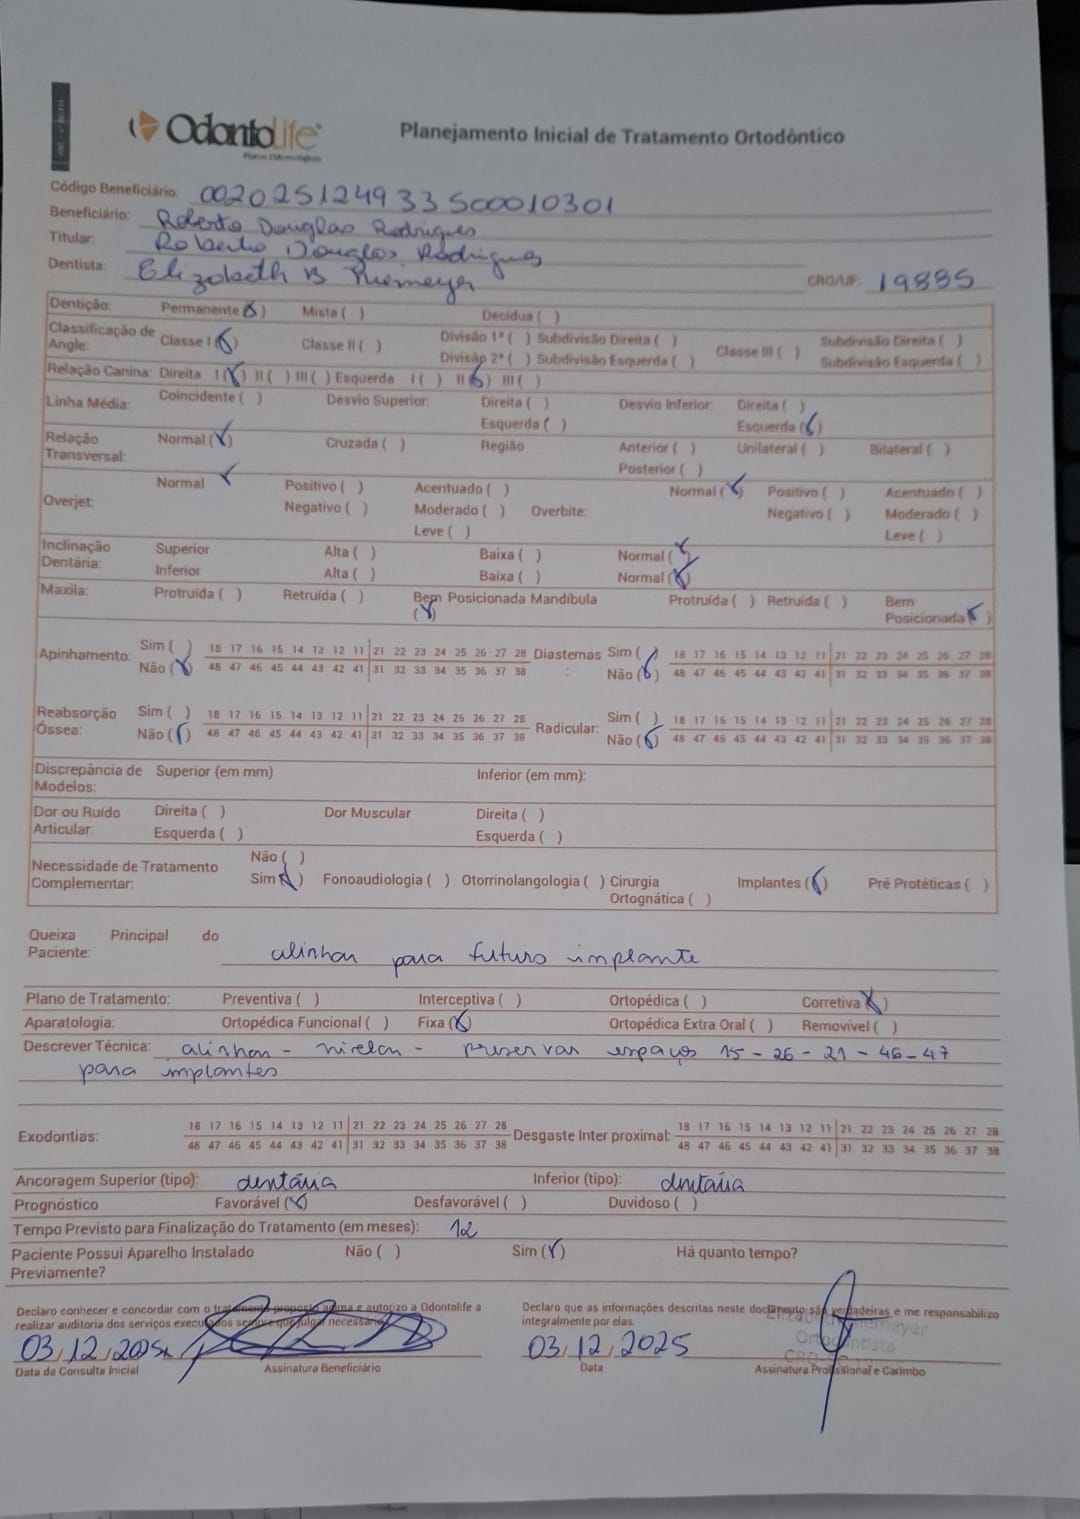 OdontoLife
Planos Odontológicos
Planejamento Inicial de Tratamento Ortodôntico
Código Beneficiário: 002025124933500010301
Beneficiário: Roberto Douglas Rodrigues
Titular: Roberto Douglas Rodrigues
Dentista: Elizabeth B Niemeyer CRO/UF: 19885
Dentição: Permanente (x) Mista ( ) Decídua ( )
Classificação de Angle: Classe I (x) Classe II ( ) Divisão 1ª ( ) Subdivisão Direita ( ) Classe III ( ) Subdivisão Direita ( )
Divisão 2ª ( ) Subdivisão Esquerda ( ) Subdivisão Esquerda ( )
Relação Canina: Direita I (x) II ( ) III ( ) Esquerda I ( ) II (x) III ( )
Linha Média: Coincidente ( ) Desvio Superior: Direita ( ) Desvio Inferior: Direita ( )
Esquerda ( ) Esquerda (x)
Relação Transversal: Normal (x) Cruzada ( ) Região Anterior ( ) Unilateral ( ) Bilateral ( )
Posterior ( )
Overjet: Normal x Positivo ( ) Acentuado ( ) Overbite: Normal (x) Positivo ( ) Acentuado ( )
Negativo ( ) Moderado ( ) Negativo ( ) Moderado ( )
Leve ( ) Leve ( )
Inclinação Dentária: Superior Alta ( ) Baixa ( ) Normal (x)
Inferior Alta ( ) Baixa ( ) Normal (x)
Maxila: Protruída ( ) Retruída ( ) Bem Posicionada (x) Mandíbula Protruída ( ) Retruída ( ) Bem Posicionada (x)
Apinhamento: Sim ( ) 18 17 16 15 14 13 12 11 21 22 23 24 25 26 27 28 Diastemas: Sim ( ) 18 17 16 15 14 13 12 11 21 22 23 24 25 26 27 28
Não (x) 48 47 46 45 44 43 42 41 31 32 33 34 35 36 37 38 Não (x) 48 47 46 45 44 43 42 41 31 32 33 34 35 36 37 38
Reabsorção Óssea: Sim ( ) 18 17 16 15 14 13 12 11 21 22 23 24 25 26 27 28 Radicular: Sim ( ) 18 17 16 15 14 13 12 11 21 22 23 24 25 26 27 28
Não (x) 48 47 46 45 44 43 42 41 31 32 33 34 35 36 37 38 Não (x) 48 47 46 45 44 43 42 41 31 32 33 34 35 36 37 38
Discrepância de Modelos: Superior (em mm) Inferior (em mm):
Dor ou Ruído Articular: Direita ( ) Dor Muscular Direita ( )
Esquerda ( ) Esquerda ( )
Necessidade de Tratamento Complementar: Não ( )
Sim (x) Fonoaudiologia ( ) Otorrinolangologia ( ) Cirurgia Ortognática ( ) Implantes (x) Pré Protéticas ( )
Queixa Principal do Paciente: alinhar para futuro implante
Plano de Tratamento: Preventiva ( ) Interceptiva ( ) Ortopédica ( ) Corretiva (x)
Aparatologia: Ortopédica Funcional ( ) Fixa (x) Ortopédica Extra Oral ( ) Removível ( )
Descrever Técnica: alinhar - nivelar - preservar espaços 15 - 26 - 21 - 46 - 47
para implantes
Exodontias: 18 17 16 15 14 13 12 11 21 22 23 24 25 26 27 28 Desgaste Inter proximal: 18 17 16 15 14 13 12 11 21 22 23 24 25 26 27 28
48 47 46 45 44 43 42 41 31 32 33 34 35 36 37 38 48 47 46 45 44 43 42 41 31 32 33 34 35 36 37 38
Ancoragem Superior (tipo): dentária Inferior (tipo): dentária
Prognóstico Favorável (x) Desfavorável ( ) Duvidoso ( )
Tempo Previsto para Finalização do Tratamento (em meses): 12
Paciente Possui Aparelho Instalado Previamente? Não ( ) Sim (x) Há quanto tempo?
Declaro conhecer e concordar com o tratamento proposto acima e autorizo a Odontolife a
realizar auditoria dos serviços executados sempre que julgar necessário.
03/12/2025
Data da Consulta Inicial Assinatura Beneficiário
Declaro que as informações descritas neste documento são verdadeiras e me responsabilizo
integralmente por elas.
Ortodontista
03/12/2025
Data Assinatura Profissional e Carimbo